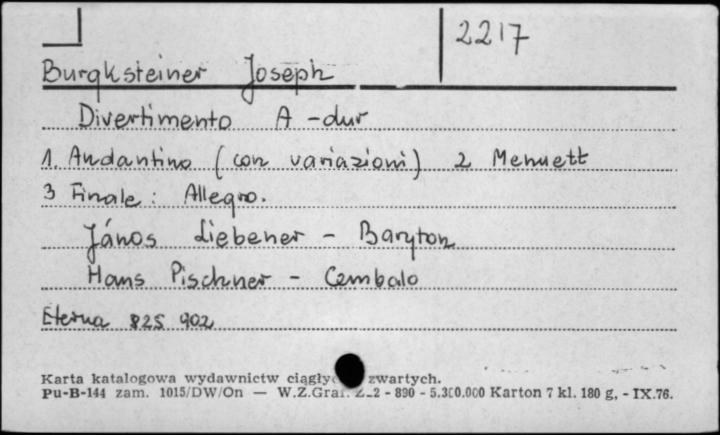 2217
Burgksteiner Joseph
Divertimento A-dur
1. Andantino (con variazioni) 2 Menuett
3 Finale: Allegro.
János Liebener - Baryton
Hans Pischner - Cembalo
Eterna 825 902
Karta katalogowa wydawnictw zwartych.
Pu-B-144 zam. 1015/DW/On — W.Z.Graf. - 890 - 5.300.000 Karton 7 kl. 180 g, - IX.76.